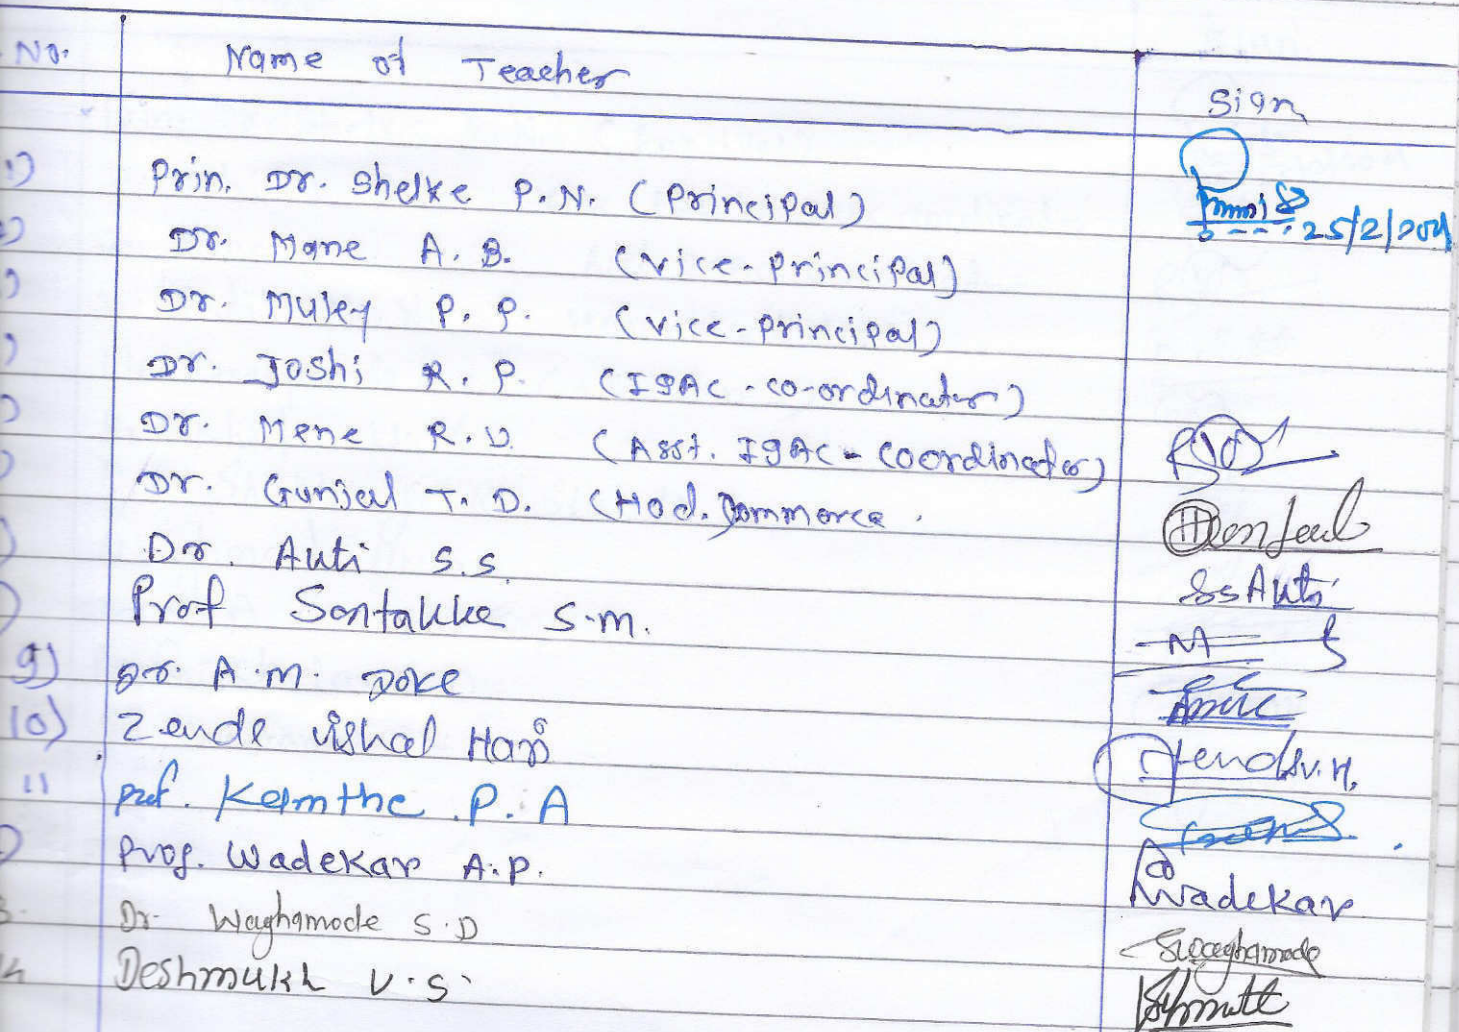 No. Name of Teacher Sign
1) Prin. Dr. Shelke P.N. (Principal)
25/2/2021
2) Dr. Mane A. B. (Vice-Principal)
) Dr. Muley P. P. (Vice-Principal)
) Dr. Joshi R. P. (IQAC-co-ordinator)
) Dr. Mene R.V. (Asst. IQAC-Coordinator)
) Dr. Gunjal T. D. (Hod. Commerce.
) Dr. Auti S.S. SSAuti
) Prof Sontakke S.M.
9) Dr. A.M. Doke
10) Zende Vishal Hari Zende V.H.
11 Prof. Kamthe P. A
) Prof. Wadekar A.P. Wadekar
3. Dr. Waghamode S.D Swaghamode
14 Deshmukh V.S.